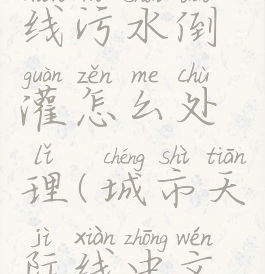 线污水倒
guàn zěn me chù
灌怎么处
lǐ chéng shì tiān
理(城市天
jì xiàn zhōng wén
际线中文